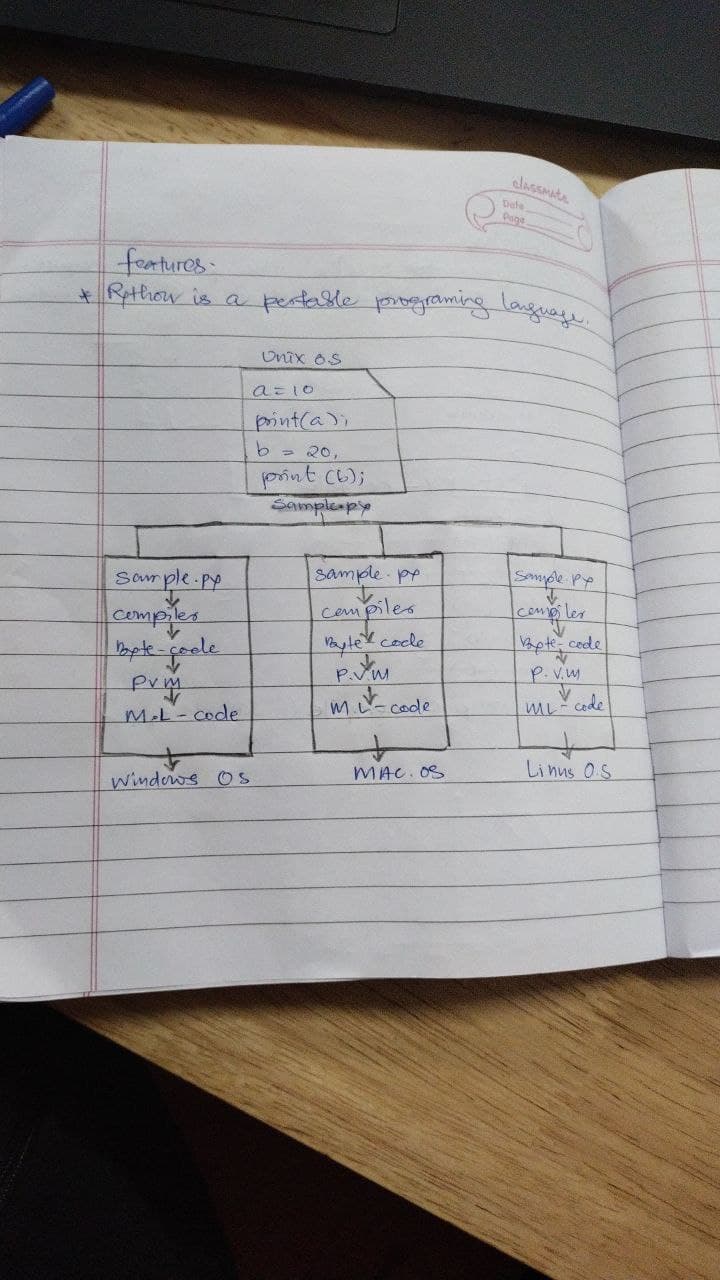 classmate
Date
Page
features.
* Python is a portable programing language.
Unix O.S
a = 10
print(a);
b = 20,
print (b);
Sample.py
Sample.py
compiler
Byte-code
PVM
M.L - code
Windows OS
Sample.py
compiler
Byte code
P.V.M
M.L - code
MAC.OS
Sample.py
compiler
Byte-code
P.V.M
ML - code
Linus O.S